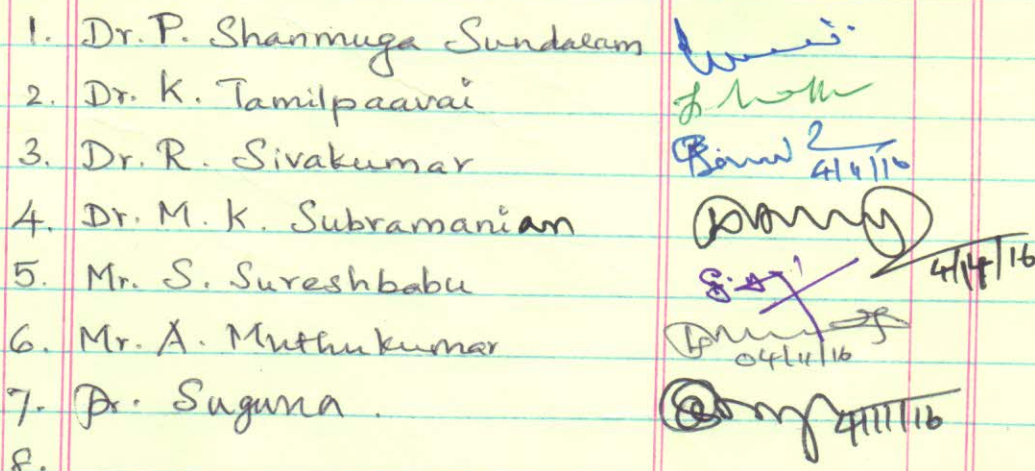 1. Dr. P. Shanmuga Sundaram
2. Dr. K. Tamilpaavai
3. Dr. R. Sivakumar 4/11/16
4. Dr. M. K. Subramanian
5. Mr. S. Sureshbabu 4/14/16
6. Mr. A. Muthukumar 04/11/16
7. Dr. Suguna. 4/11/16
8.